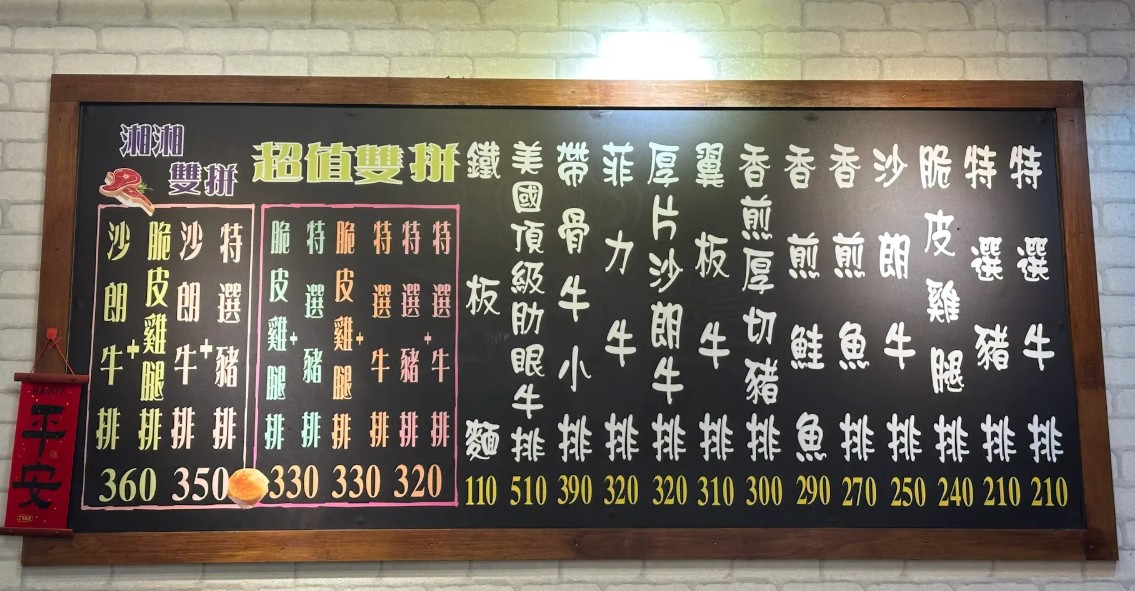 特選牛排 210
特選豬排 210
脆皮雞腿排 240
沙朗牛排 250
香煎魚排 270
香煎鮭魚 290
香煎厚切豬排 300
翼板牛排 310
厚片沙朗牛排 320
菲力牛排 320
帶骨牛小排 390
美國頂級肋眼牛排 510
鐵板麵 110
超值雙拼
特選牛排+特選豬排 320
特選牛排+脆皮雞腿排 330
特選豬排+脆皮雞腿排 330
湘湘
雙拼
特選豬排+沙朗牛排 350
脆皮雞腿排+沙朗牛排 360
平安